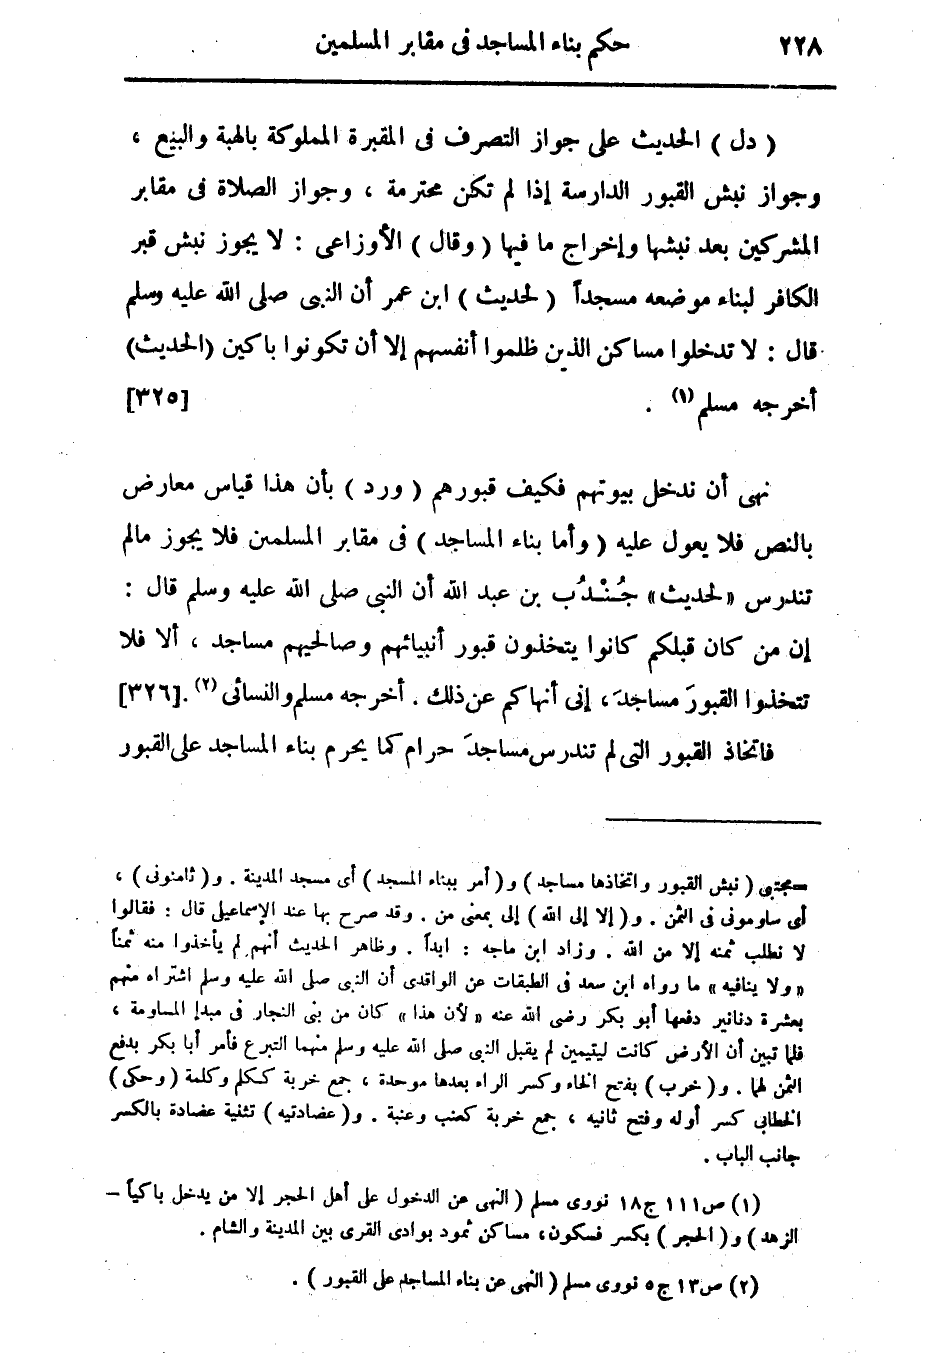 ٢٢٨ حكم بناء المساجد فى مقابر المسلمين
( دل ) الحديث على جواز التصرف فى المقبرة المملوكة بالهبة والبيع ،
وجواز نبش القبور الدارسة إذا لم تكن محترمة ، وجواز الصلاة فى مقابر
المشركين بعد نبشها وإخراج ما فيها ( وقال ) الأوزاعى : لا يجوز نبش قبر
الكافر لبناء موضعه مسجداً ( لحديث ) ابن عمر أن النبى صلى الله عليه وسلم
قال : لا تدخلوا مساكن الذين ظلموا أنفسهم إلا أن تكونوا باكين (الحديث)
أخرجه مسلم (١) . [٣٢٥]
نهى أن ندخل بيوتهم فكيف قبورهم ( ورد ) بأن هذا قياس معارض
بالنص فلا يعول عليه ( وأما بناء المساجد ) فى مقابر المسلمين فلا يجوز مالم
تندرس «لحديث» جُنْدُب بن عبد الله أن النبى صلى الله عليه وسلم قال :
إن من كان قبلكم كانوا يتخذون قبور أنبيائهم وصالحيهم مساجد ، ألا فلا
تتخذوا القبورَ مساجدَ ، إنى أنهاكم عن ذلك . أخرجه مسلم والنسائى (٢) .[٣٢٦]
فاتخاذ القبور التى لم تندرس مساجدَ حرام كما يحرم بناء المساجد على القبور
=مجتبى ( نبش القبور واتخاذها مساجد ) و( أمر ببناء المسجد ) أى مسجد المدينة . و( ثامنونى ) ،
أى ساومونى فى الثمن . و( إلا إلى الله ) إلى بمعنى من . وقد صرح بها عند الإسماعيلى قال : فقالوا
لا نطلب ثمنه إلا من الله . وزاد ابن ماجه : ابداً . وظاهر الحديث أنهم لم يأخذوا منه ثمناً
«ولا ينافيه» ما رواه ابن سعد فى الطبقات عن الواقدى أن النبى صلى الله عليه وسلم اشتراه منهم
بعشرة دنانير دفعها أبو بكر رضى الله عنه «لأن هذا» كان من بنى النجار فى مبدإ المساومة ،
فلما تبين أن الأرض كانت ليتيمين لم يقبل النبى صلى الله عليه وسلم منهما التبرع فأمر أبا بكر بدفع
الثمن لهما . و( خرب ) بفتح الخاء وكسر الراء بعدها موحدة ، جمع خربة ككلم وكلمة ( وحكى )
الخطابى كسر أوله وفتح ثانيه ، جمع خربة كعنب وعنبة . و( عضادتيه ) تثنية عضادة بالكسر
جانب الباب .
(١) ص١١١ ج١٨ نووى مسلم ( النهى عن الدخول على أهل الحجر إلا من يدخل باكياً –
الزهد ) و( الحجر ) بكسر فسكون، مساكن ثمود بوادى القرى بين المدينة والشام .
(٢) ص١٣ ج٥ نووى مسلم ( النهى عن بناء المساجد على القبور ) .